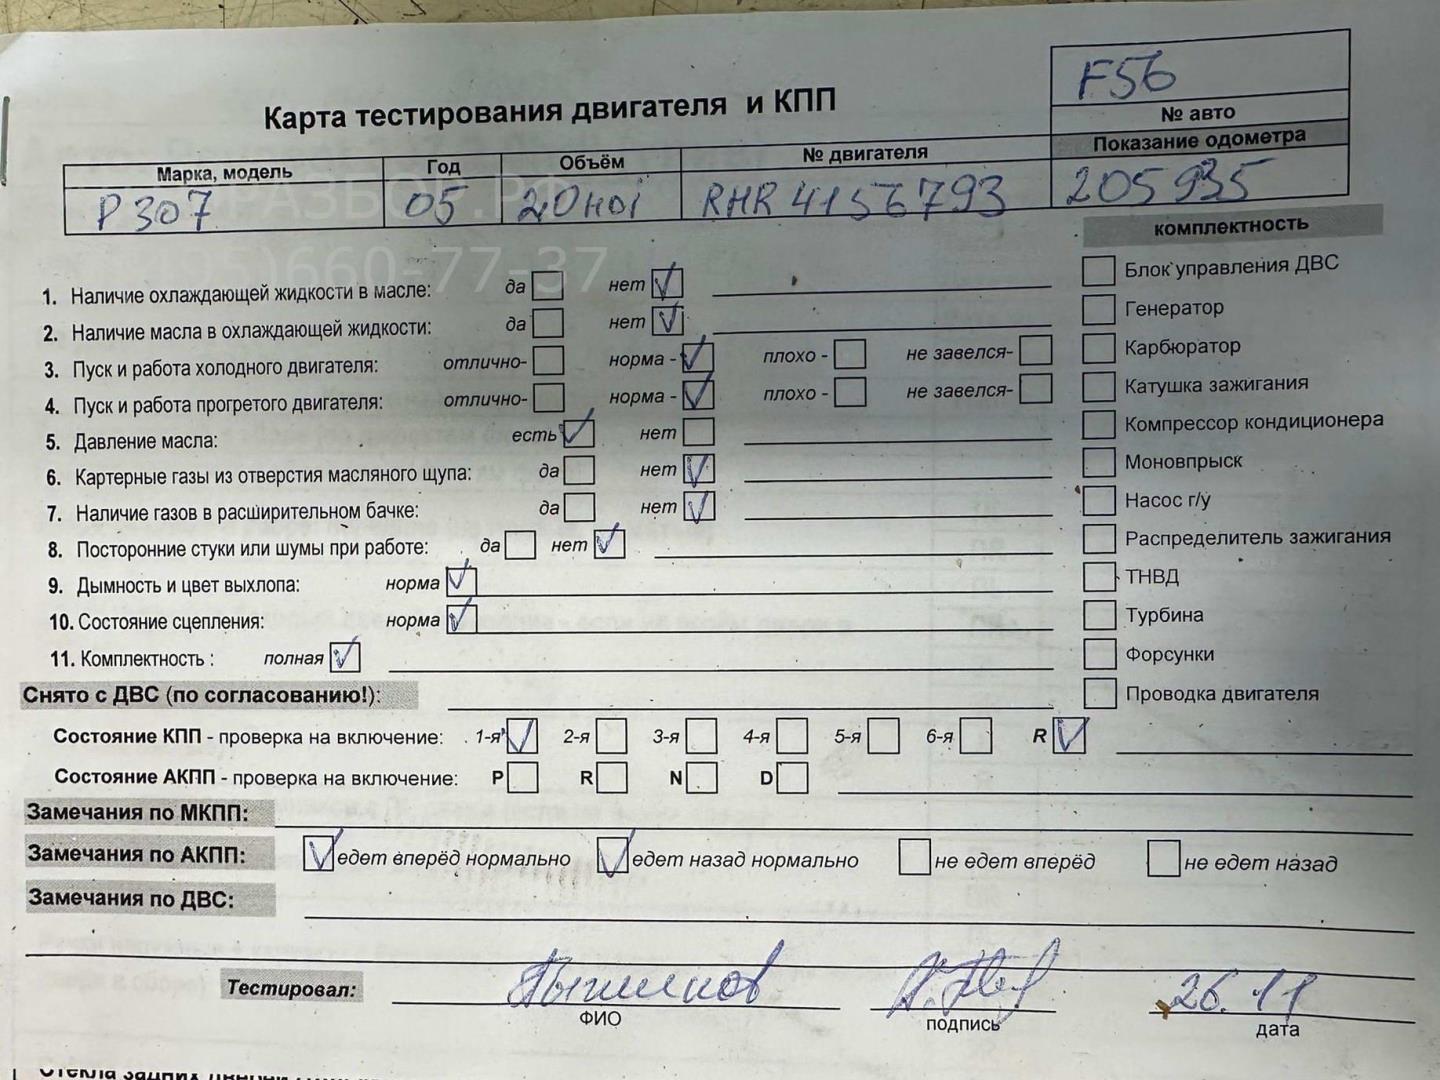 F56
№ авто
Карта тестирования двигателя и КПП
Показание одометра
Марка, модель Год Объём № двигателя
P 307 05 2.0 HDI RHR 4156793 205935
РАЗБОР.РФ
(495)660-77-37
комплектность
Блок управления ДВС
Генератор
Карбюратор
Катушка зажигания
Компрессор кондиционера
Моновпрыск
Насос г/у
Распределитель зажигания
ТНВД
Турбина
Форсунки
Проводка двигателя
1. Наличие охлаждающей жидкости в масле: да нет
2. Наличие масла в охлаждающей жидкости: да нет
3. Пуск и работа холодного двигателя: отлично- норма - плохо - не завелся-
4. Пуск и работа прогретого двигателя: отлично- норма - плохо - не завелся-
5. Давление масла: есть нет
6. Картерные газы из отверстия масляного щупа: да нет
7. Наличие газов в расширительном бачке: да нет
8. Посторонние стуки или шумы при работе: да нет
9. Дымность и цвет выхлопа: норма
10. Состояние сцепления: норма
11. Комплектность : полная
Снято с ДВС (по согласованию!):
Состояние КПП - проверка на включение: 1-я 2-я 3-я 4-я 5-я 6-я R
Состояние АКПП - проверка на включение: P R N D
Замечания по МКПП:
Замечания по АКПП: едет вперёд нормально едет назад нормально не едет вперёд не едет назад
Замечания по ДВС:
Тестировал: 26.11
ФИО подпись дата